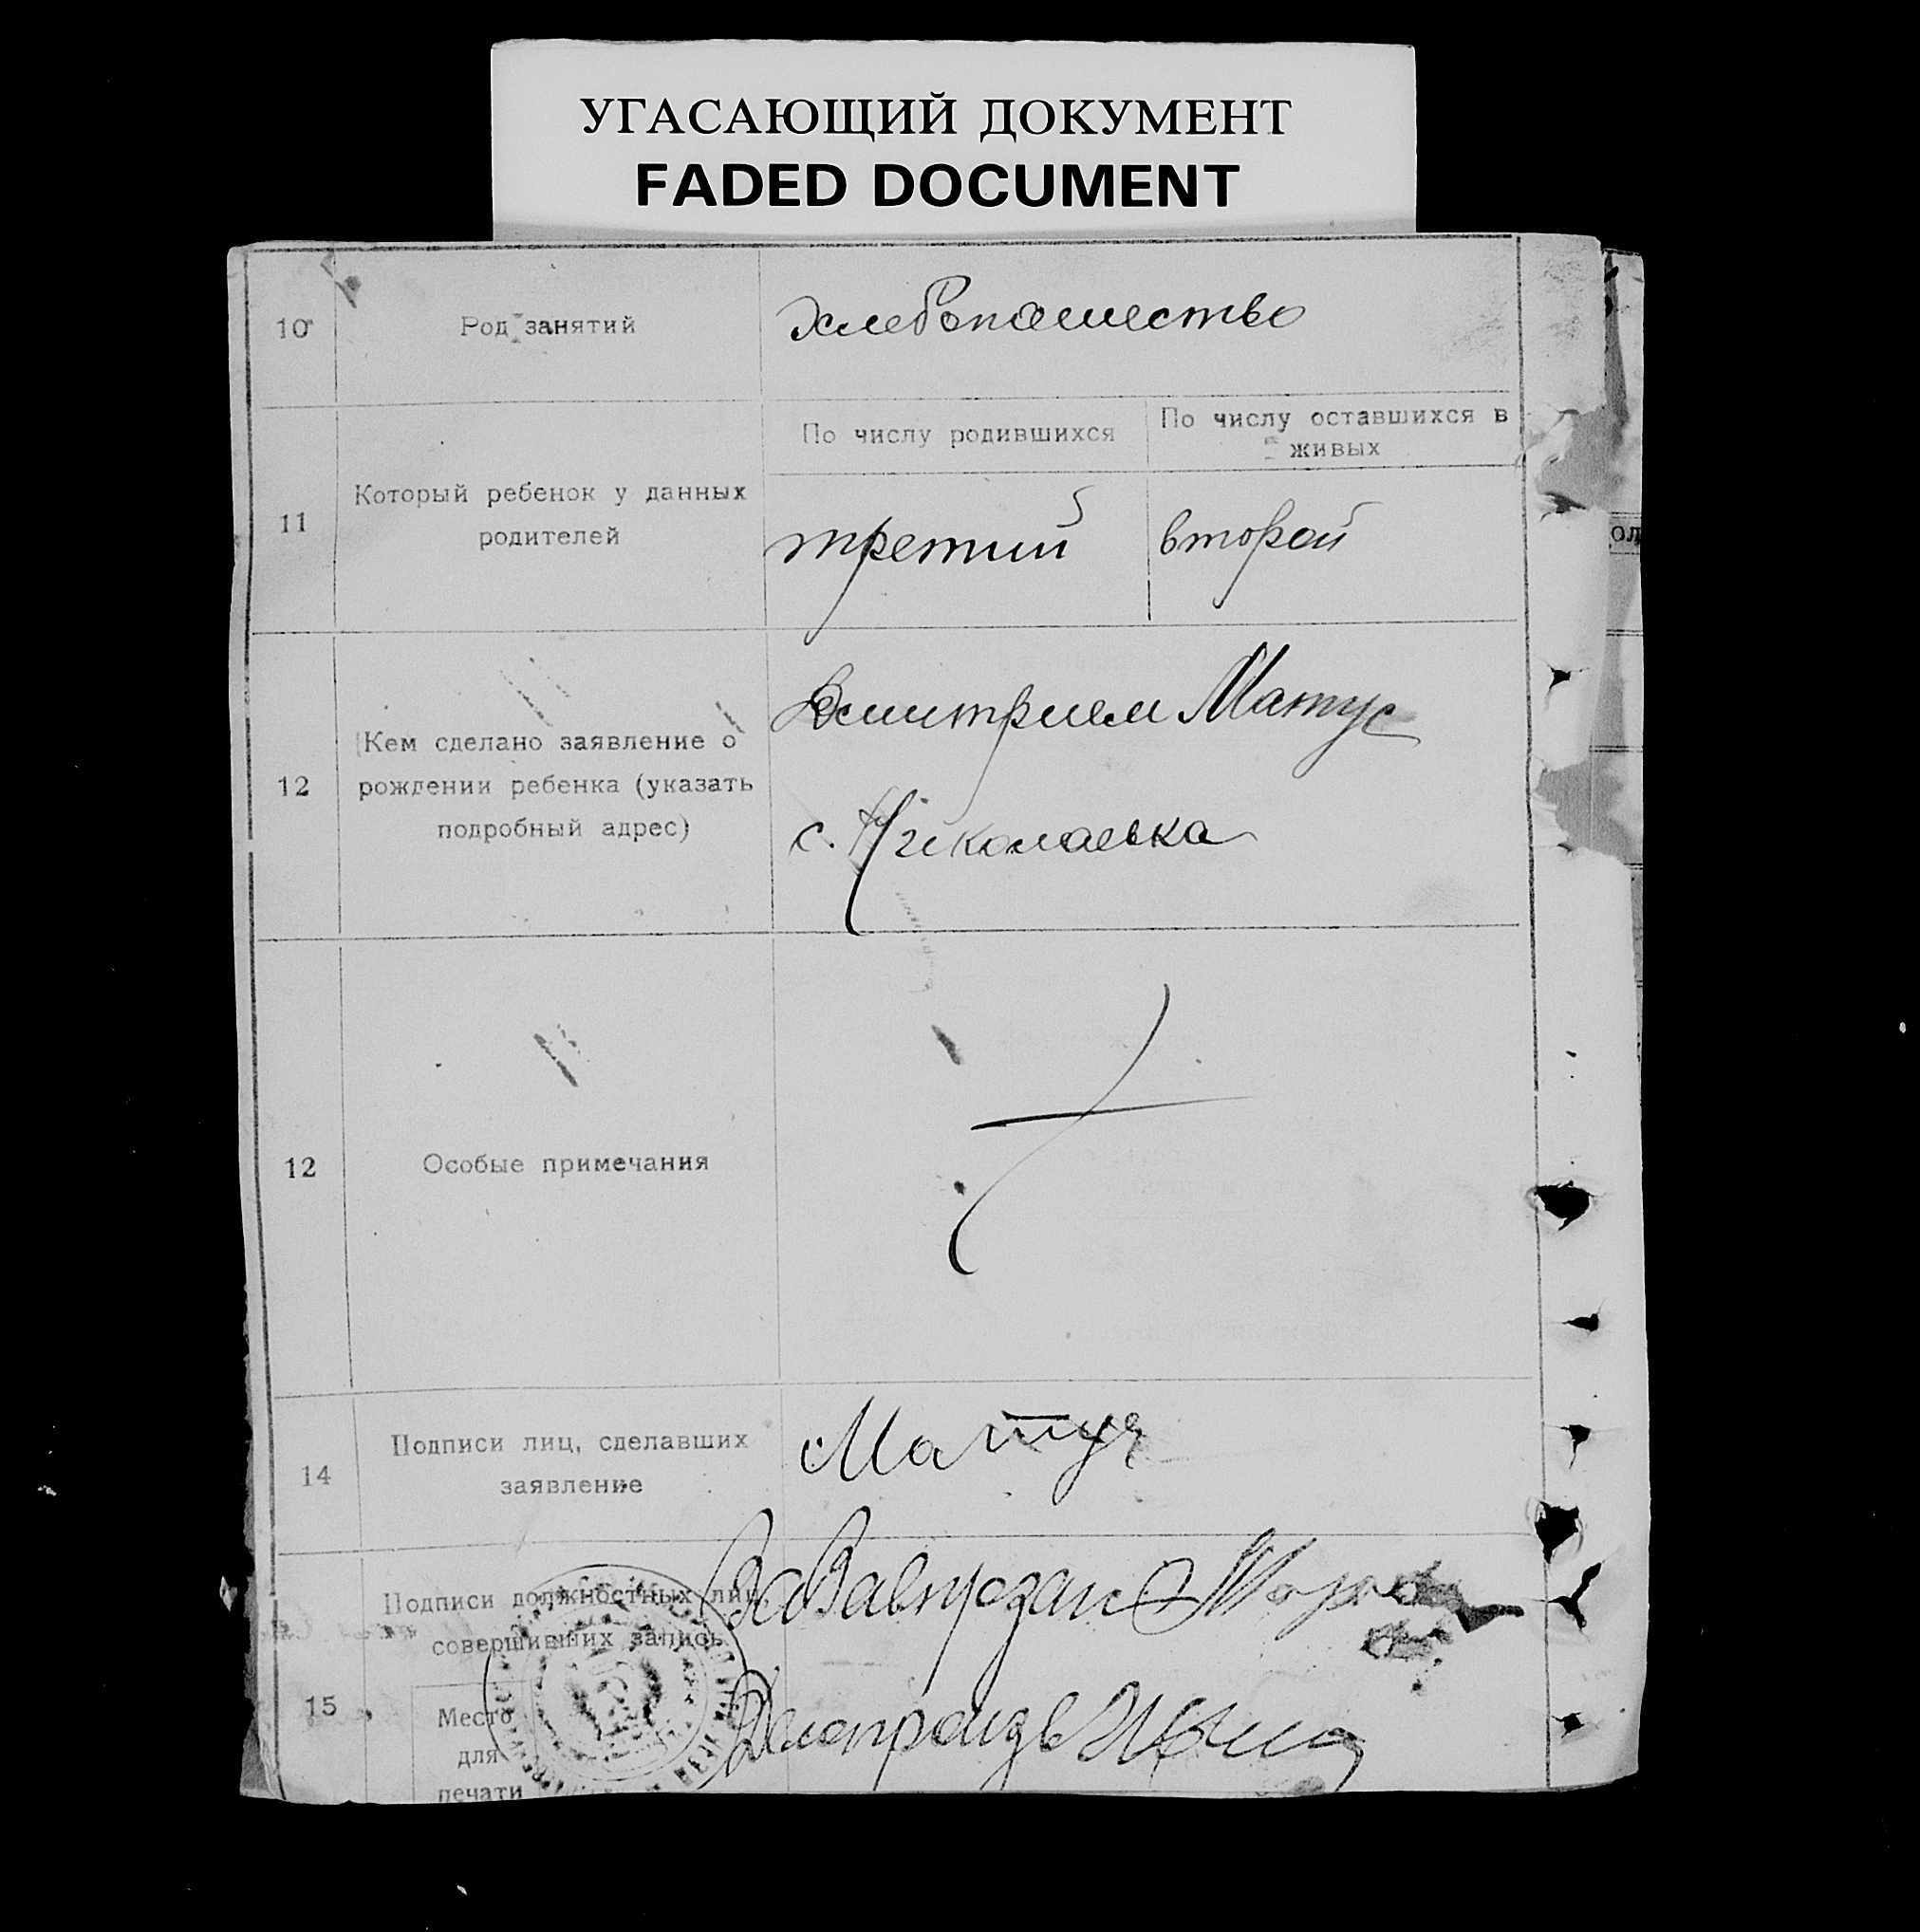 УГАСАЮЩИЙ ДОКУМЕНТ
FADED DOCUMENT
10
Род занятий
хлебопашество
11
Который ребенок у данных
родителей
По числу родившихся
По числу оставшихся в
живых
третий
второй
12
Кем сделано заявление о
рождении ребенка (указать
подробный адрес)
Дмитрием Матус
с. Николаевка
12
Особые примечания
14
Подписи лиц, сделавших
заявление
Матус
15
Подписи должностных лиц
совершивших запись
Место
для
печати
ол